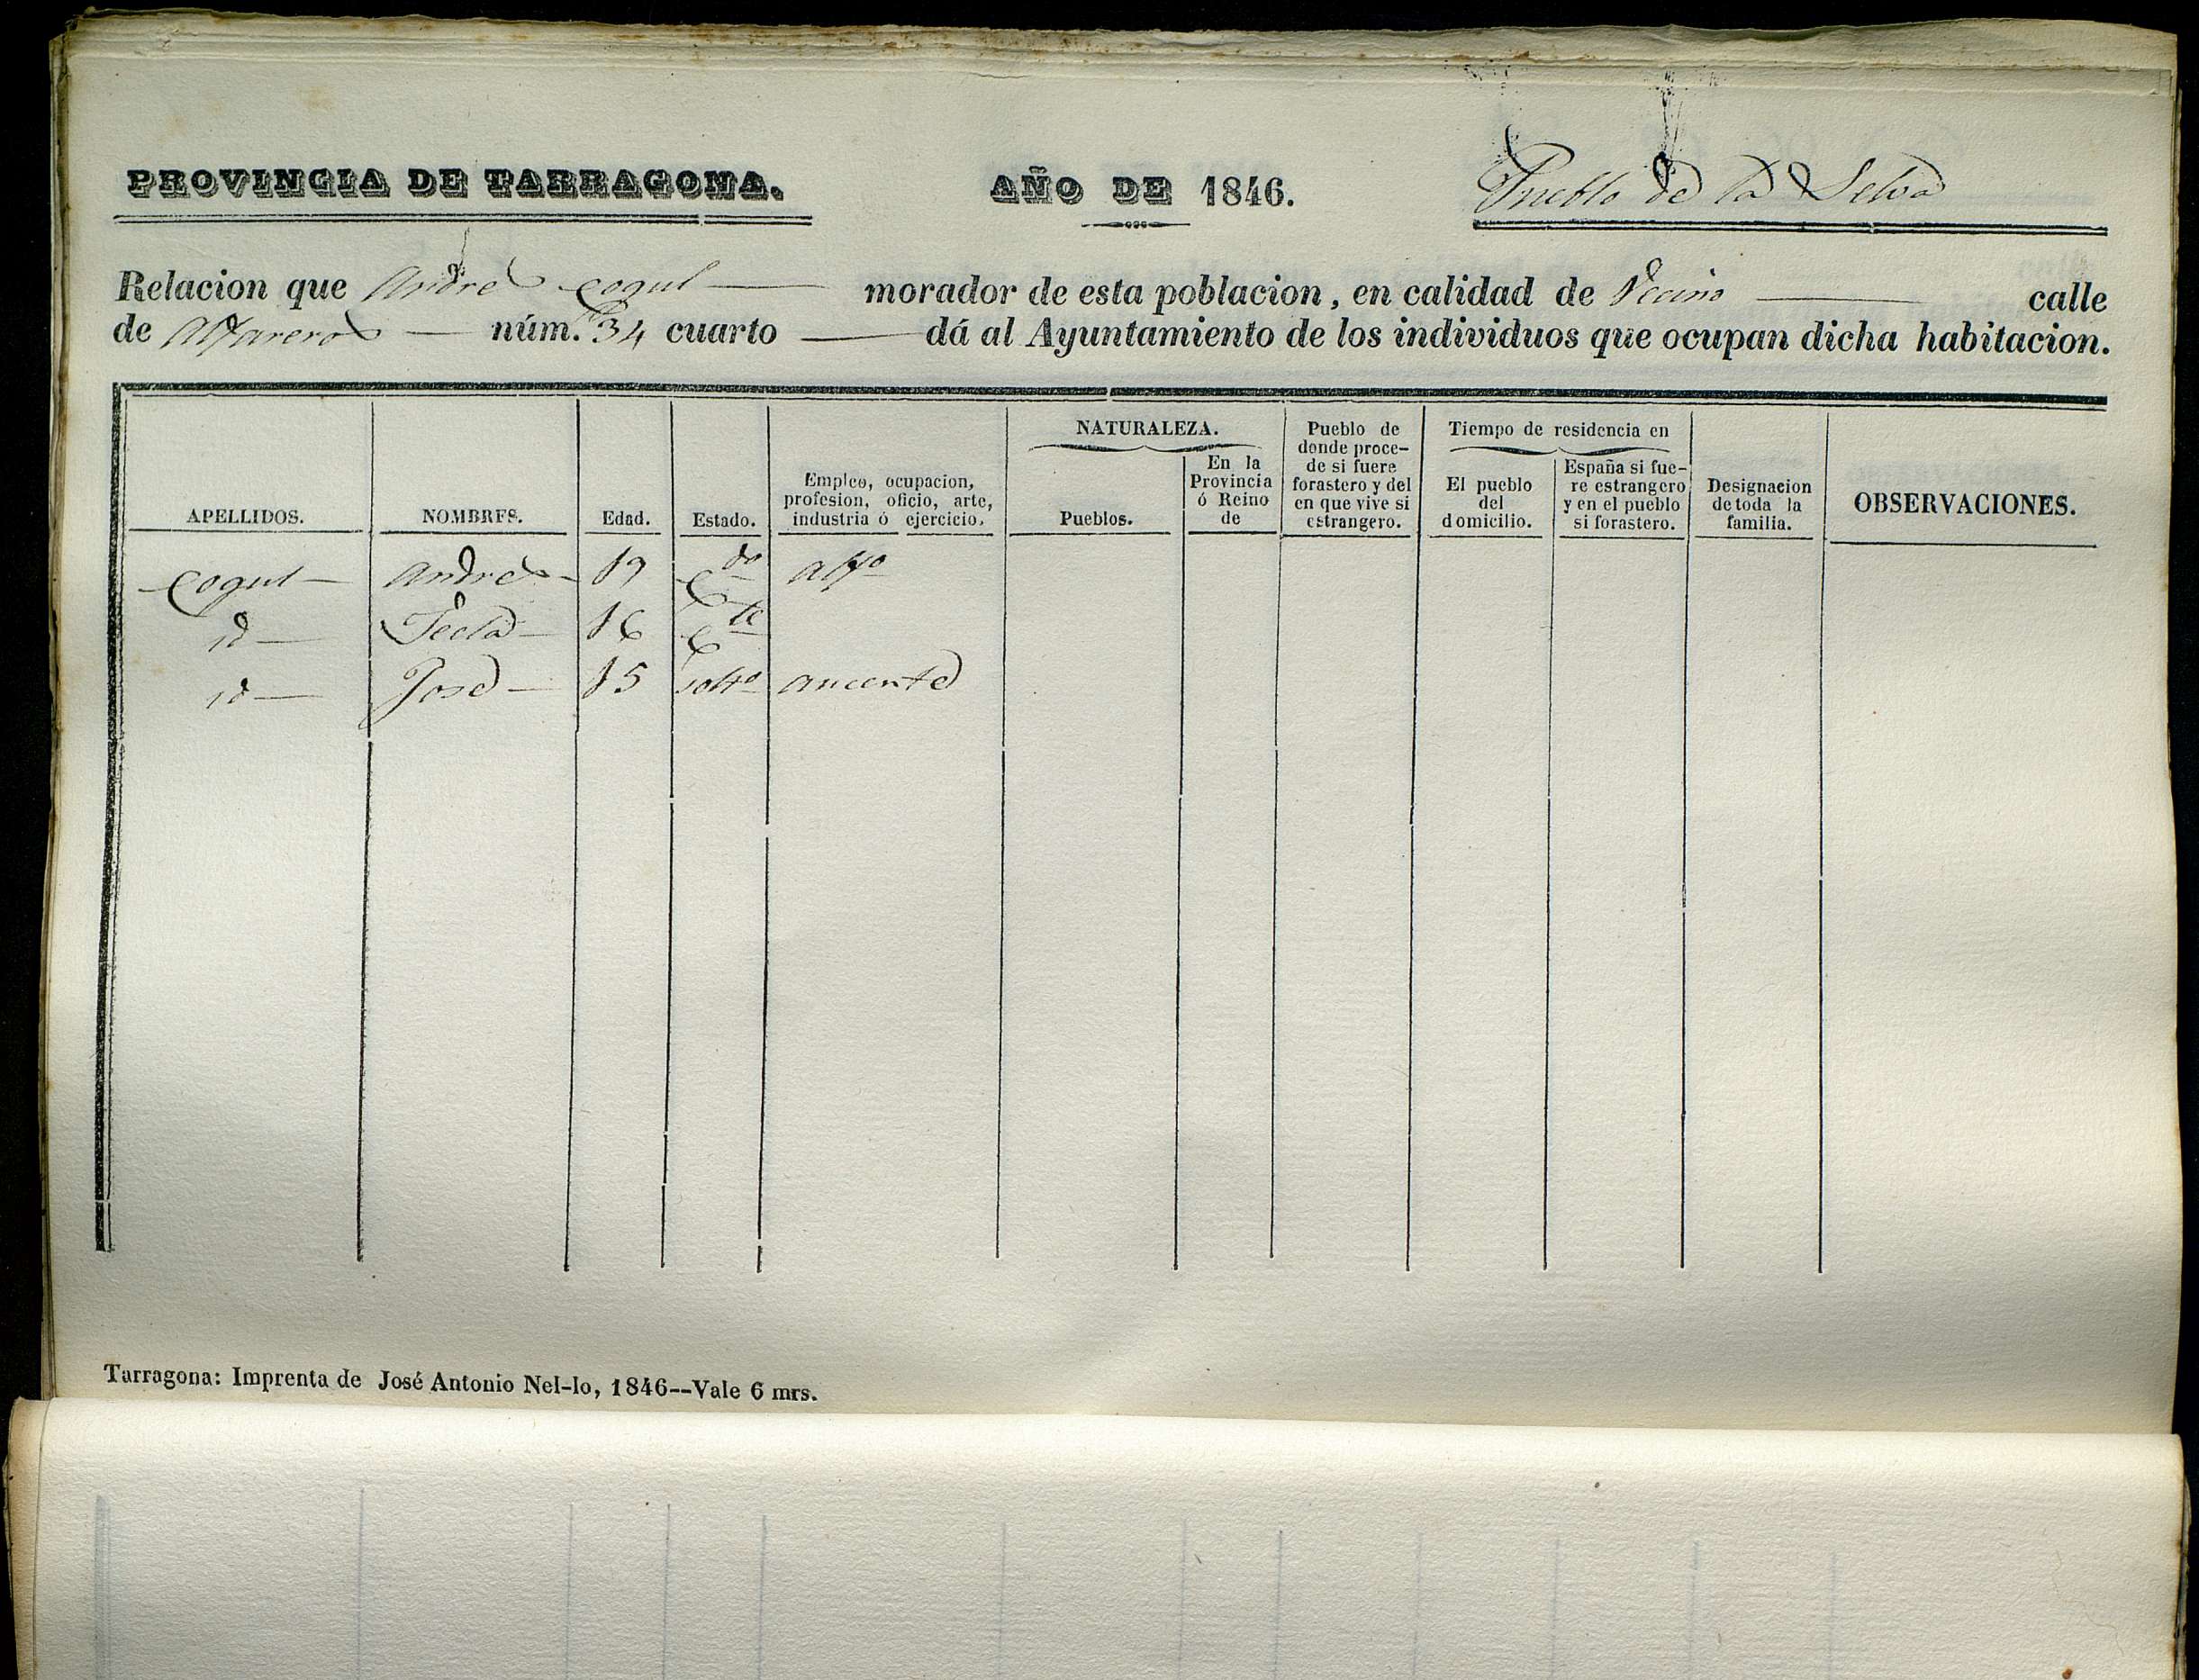 PROVINCIA DE TARRAGONA. AÑO DE 1846. Pueblo de la Selva
Relacion que Andres Cogul — morador de esta poblacion, en calidad de Vecino — calle
de Alfareros — núm. 34 cuarto — dá al Ayuntamiento de los individuos que ocupan dicha habitacion.
APELLIDOS.
NOMBRES.
Edad.
Estado.
Empleo, ocupacion,
profesion, oficio, arte,
industria ó ejercicio.
NATURALEZA.
Pueblos.
En la
Provincia
ó Reino
de
Pueblo de
donde proce-
de si fuere
forastero y del
en que vive si
estrangero.
Tiempo de residencia en
El pueblo
del
domicilio.
España si fue-
re estrangero
y en el pueblo
si forastero.
Designacion
de toda la
familia.
OBSERVACIONES.
Cogul — Andres — 19 C.do Alfo
id — Tecla — 16 C.te
id — José — 15 solto aucente
Tarragona: Imprenta de José Antonio Nel-lo, 1846--Vale 6 mrs.